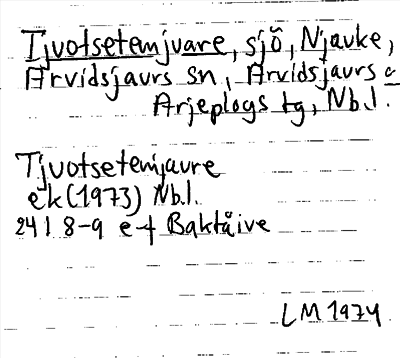 Tjvotsetemjvare, sjö, Njavke,
Arvidsjaurs sn, Arvidsjaurs o
Arjeplogs tg, Nb.l.
Tjvotsetemjavre
ek (1973) Nb.l.
24 I 8-9 e-f Baktåive
LM 1974